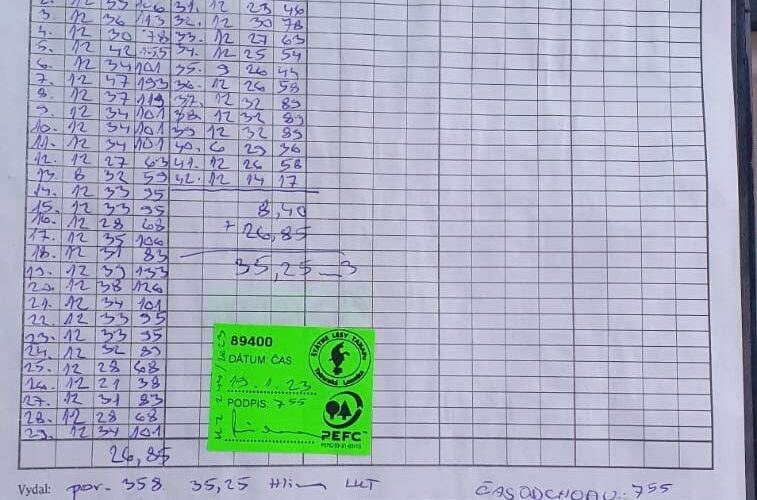 3. 12 36 113 32. 12 30 78
4. 12 30 78 33. 12 27 63
5. 12 42 155 34. 12 25 54
6. 12 34 101 35. 9 26 44
7. 12 47 193 36. 12 26 58
8. 12 37 119 37. 12 32 89
9. 12 34 101 38. 12 32 89
10. 12 34 101 39 12 32 89
11. 12 34 101 40. 6 29 36
12. 12 27 63 41. 12 26 58
13. 8 32 59 42. 12 14 17
14. 12 33 95
15. 12 33 95 8,40
16. 12 28 68
17. 12 35 106 + 26,85
18. 12 31 83
19. 12 39 133 35,25 m3
20. 12 38 126
21. 12 34 101
22. 12 33 95
23. 12 33 95
24. 12 32 89
25. 12 28 68
26. 12 21 38
27. 12 31 83
28. 12 28 68
29. 12 34 101
26,85
89400
DÁTUM, ČAS
19.1.23
PODPIS: 7 55
ŠTÁTNE LESY TANAPU
Tatranská Lomnica
PEFC™
Vydal: por. 358 35,25
ČAS ODCHODU: 7 55